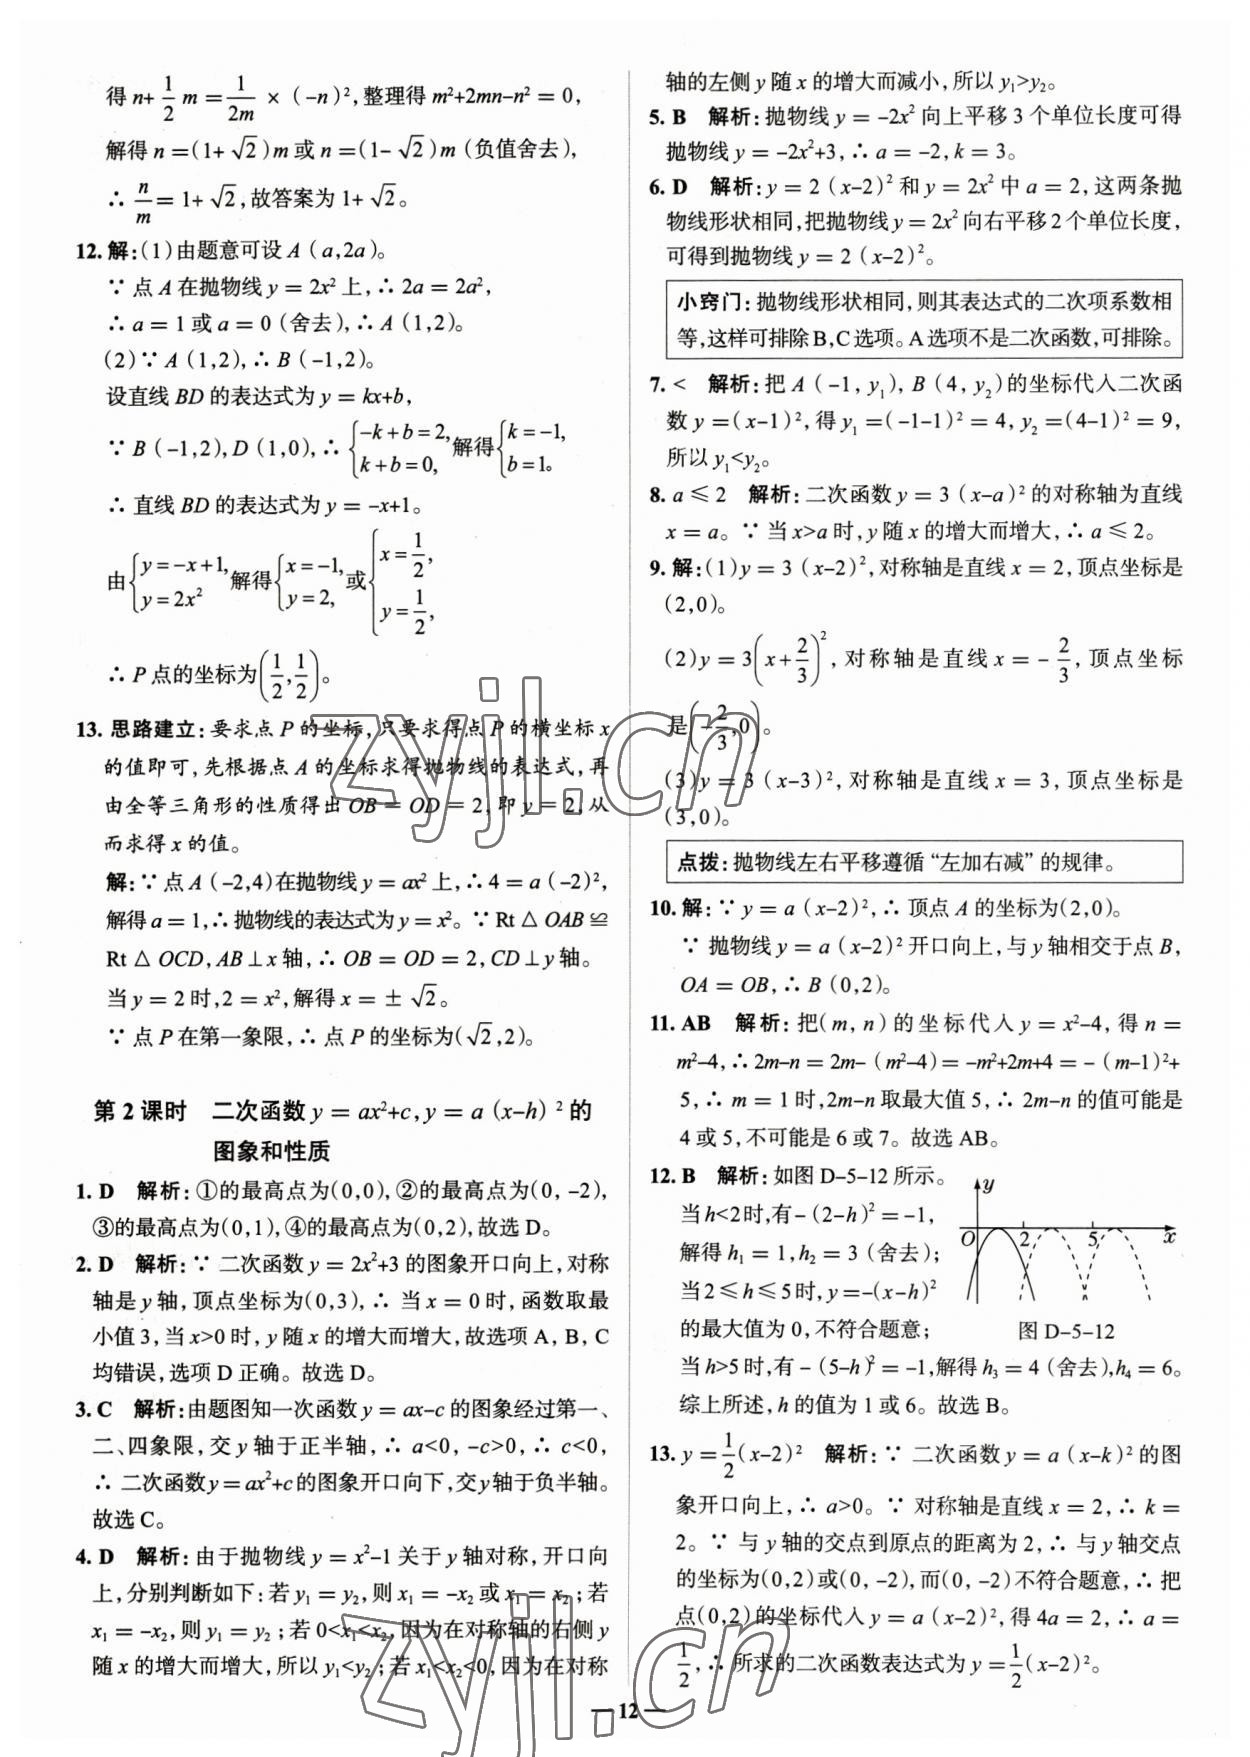 得n+1/2 m=1/2m×(-n)²,整理得m²+2mn-n²=0,
解得n=(1+√2)m或n=(1-√2)m(负值舍去),
∴n/m=1+√2,故答案为1+√2。
12.解:(1)由题意可设A(a,2a)。
∵点A在抛物线y=2x²上,∴2a=2a²,
∴a=1或a=0(舍去),∴A(1,2)。
(2)∵A(1,2),∴B(-1,2)。
设直线BD的表达式为y=kx+b,
∵B(-1,2),D(1,0),∴{-k+b=2, k+b=0, 解得{k=-1, b=1。
∴直线BD的表达式为y=-x+1。
由{y=-x+1, y=2x² 解得{x=-1, y=2, 或{x=1/2, y=1/2,
∴P点的坐标为(1/2,1/2)。
13.思路建立:要求点P的坐标,只要求得点P的横坐标x
的值即可,先根据点A的坐标求得抛物线的表达式,再
由全等三角形的性质得出OB=OD=2,即y=2,从
而求得x的值。
解:∵点A(-2,4)在抛物线y=ax²上,∴4=a(-2)²,
解得a=1,∴抛物线的表达式为y=x²。∵Rt△OAB≌
Rt△OCD,AB⊥x轴,∴OB=OD=2,CD⊥y轴。
当y=2时,2=x²,解得x=±√2。
∵点P在第一象限,∴点P的坐标为(√2,2)。
第2课时 二次函数y=ax²+c,y=a(x-h)²的
图象和性质
1.D 解析:①的最高点为(0,0),②的最高点为(0,-2),
③的最高点为(0,1),④的最高点为(0,2),故选D。
2.D 解析:∵二次函数y=2x²+3的图象开口向上,对称
轴是y轴,顶点坐标为(0,3),∴当x=0时,函数取最
小值3,当x>0时,y随x的增大而增大,故选项A,B,C
均错误,选项D正确。故选D。
3.C 解析:由题图知一次函数y=ax-c的图象经过第一、
二、四象限,交y轴于正半轴,∴a<0,-c>0,∴c<0,
∴二次函数y=ax²+c的图象开口向下,交y轴于负半轴。
故选C。
4.D 解析:由于抛物线y=x²-1关于y轴对称,开口向
上,分别判断如下:若y₁=y₂,则x₁=-x₂或x₁=x₂;若
x₁=-x₂,则y₁=y₂;若0<x₁<x₂,因为在对称轴的右侧y
随x的增大而增大,所以y₁<y₂;若x₁<x₂<0,因为在对称
轴的左侧y随x的增大而减小,所以y₁>y₂。
5.B 解析:抛物线y=-2x²向上平移3个单位长度可得
抛物线y=-2x²+3,∴a=-2,k=3。
6.D 解析:y=2(x-2)²和y=2x²中a=2,这两条抛
物线形状相同,把抛物线y=2x²向右平移2个单位长度,
可得到抛物线y=2(x-2)²。
小窍门:抛物线形状相同,则其表达式的二次项系数相
等,这样可排除B,C选项。A选项不是二次函数,可排除。
7.< 解析:把A(-1,y₁),B(4,y₂)的坐标代入二次函
数y=(x-1)²,得y₁=(-1-1)²=4,y₂=(4-1)²=9,
所以y₁<y₂。
8.a≤2 解析:二次函数y=3(x-a)²的对称轴为直线
x=a。∵当x>a时,y随x的增大而增大,∴a≤2。
9.解:(1)y=3(x-2)²,对称轴是直线x=2,顶点坐标是
(2,0)。
(2)y=3(x+2/3)²,对称轴是直线x=-2/3,顶点坐标
是(-2/3,0)。
(3)y=3(x-3)²,对称轴是直线x=3,顶点坐标是
(3,0)。
点拨:抛物线左右平移遵循“左加右减”的规律。
10.解:∵y=a(x-2)²,∴顶点A的坐标为(2,0)。
∵抛物线y=a(x-2)²开口向上,与y轴相交于点B,
OA=OB,∴B(0,2)。
11.AB 解析:把(m,n)的坐标代入y=x²-4,得n=
m²-4,∴2m-n=2m-(m²-4)=-m²+2m+4=-(m-1)²+
5,∴m=1时,2m-n取最大值5,∴2m-n的值可能是
4或5,不可能是6或7。故选AB。
12.B 解析:如图D-5-12所示。
当h<2时,有-(2-h)²=-1,
解得h₁=1,h₂=3(舍去);
当2≤h≤5时,y=-(x-h)²
的最大值为0,不符合题意;
y
O 2 5 x
图D-5-12
当h>5时,有-(5-h)²=-1,解得h₃=4(舍去),h₄=6。
综上所述,h的值为1或6。故选B。
13.y=1/2(x-2)² 解析:∵二次函数y=a(x-k)²的图
象开口向上,∴a>0。∵对称轴是直线x=2,∴k=
2。∵与y轴的交点到原点的距离为2,∴与y轴交点
的坐标为(0,2)或(0,-2),而(0,-2)不符合题意,∴把
点(0,2)的坐标代入y=a(x-2)²,得4a=2,∴a=
1/2,∴所求的二次函数表达式为y=1/2(x-2)²。
12
zyjl.cn
zyjl.cn